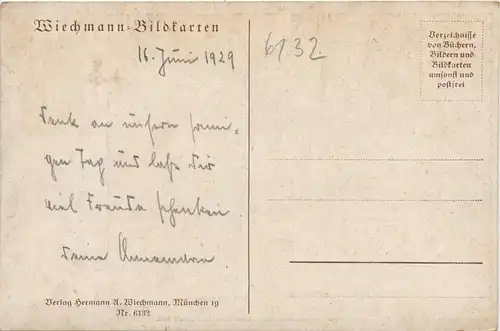 Wiechmann-Bildkarten
16. Juni 1929
6132
Verzeichnisse
von Büchern,
Bildern und
Bildkarten
umsonst und
postfrei
Denk an unsern sonni-
gen Tag und laß Dir
viel Freude schenken.
Deine
Verlag Hermann A. Wiechmann, München 19
Nr. 6132